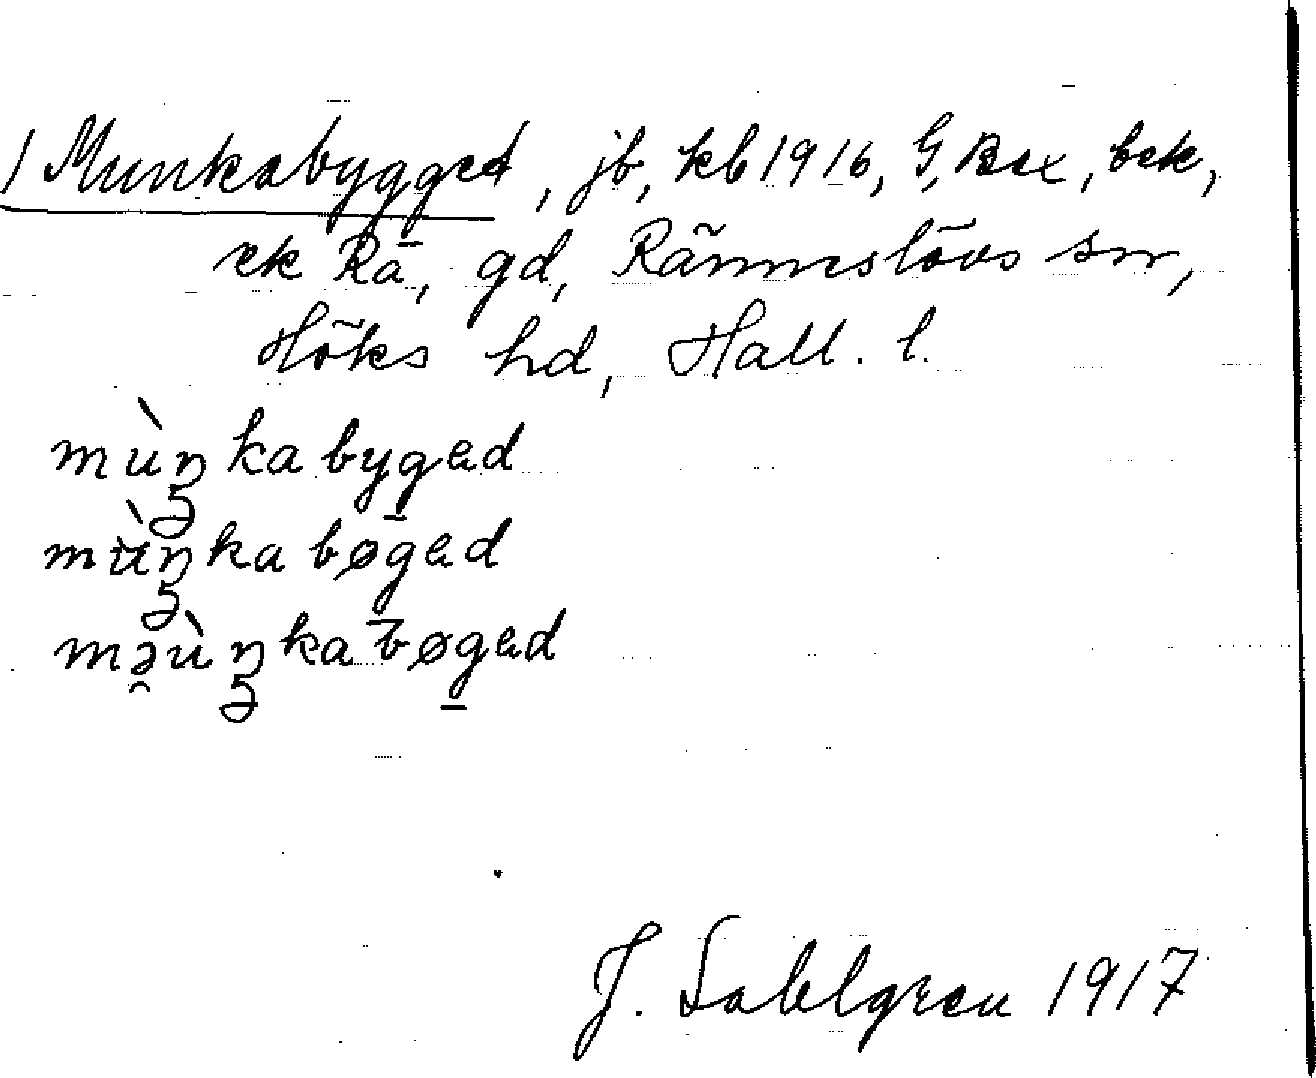 / Munkabygged, jb, kb 1916, G, bek,
ek Rä, gd, Rännеslövs sn,
Höks hd, Hall. l.
mùŋkabygad
mùŋkabøgad
məùŋkabøgad
J. Sahlgren 1917